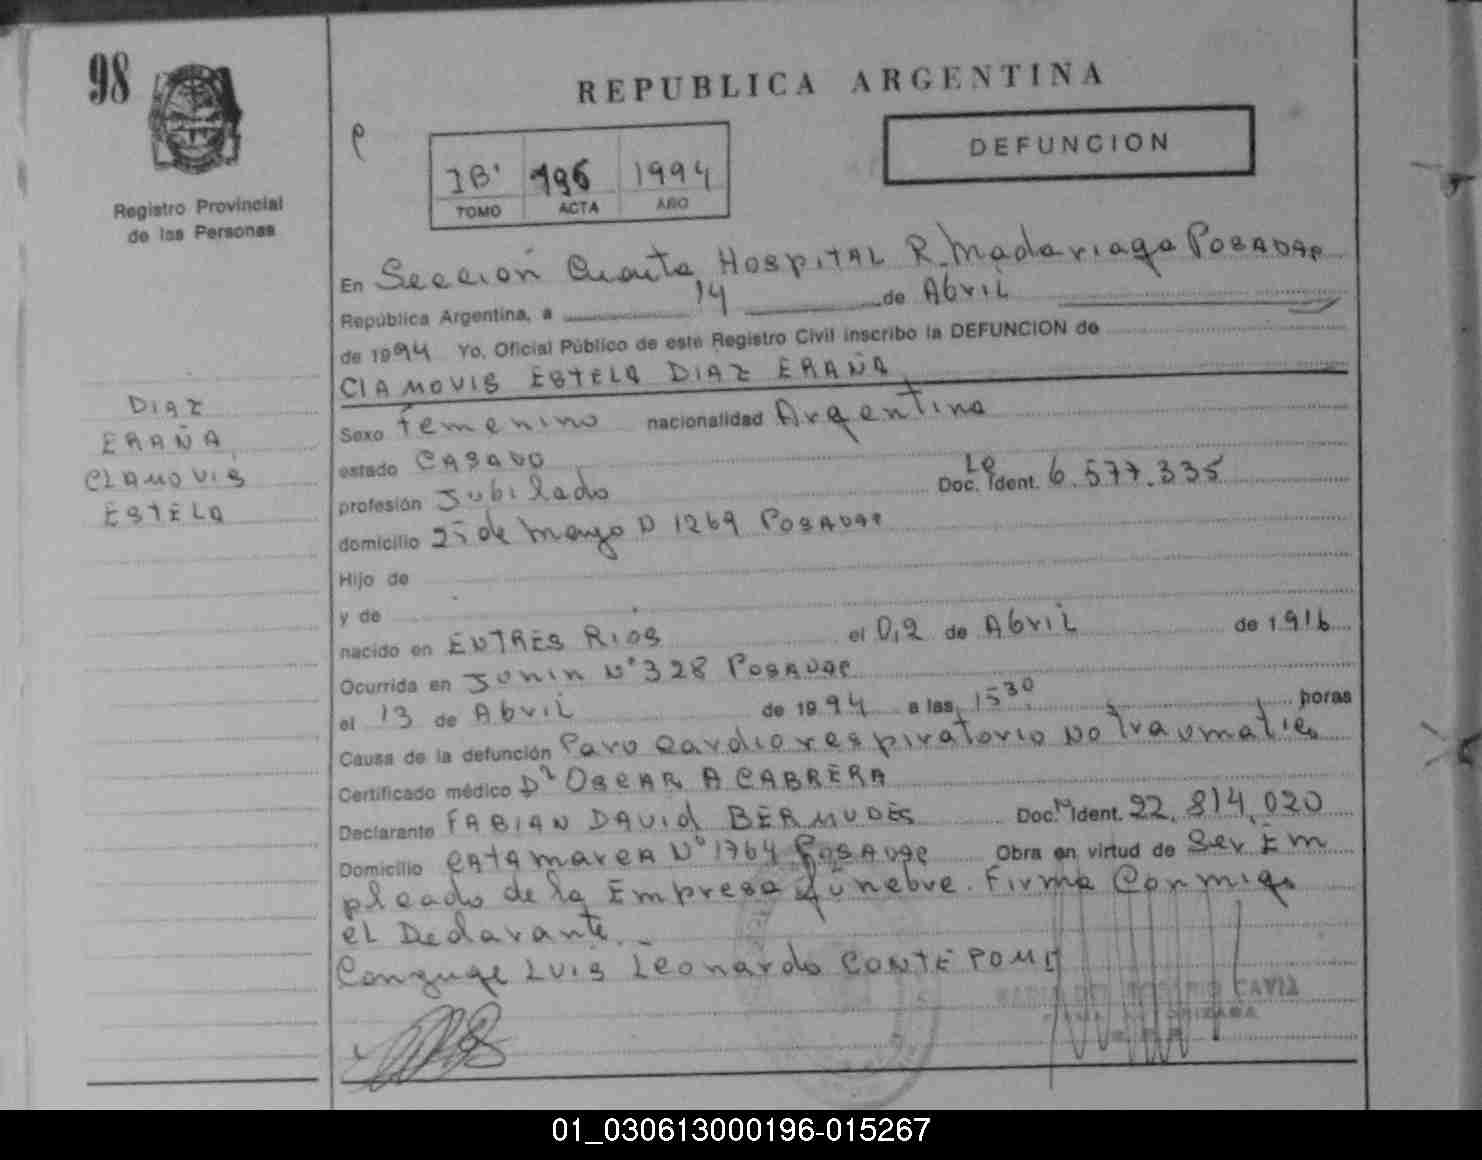 98
REPUBLICA ARGENTINA
DEFUNCION
1B' 196 1994
TOMO ACTA AÑO
Registro Provincial
de las Personas
En Sección Cuarta Hospital R. Madariaga Posadas
República Argentina, a 14 de Abril
de 1994 Yo, Oficial Público de este Registro Civil inscribo la DEFUNCION de
CLAMOVIS ESTELA DIAZ ERAÑA
DIAZ
ERAÑA
CLAMOVIS
ESTELA
Sexo femenino nacionalidad Argentina
estado CASADO
profesión Jubilado Doc. Ident. LC 6.577.335
domicilio 25 de Mayo D 1269 Posadas
Hijo de
y de
nacido en ENTRES RIOS el 0,2 de Abril de 1916
Ocurrida en Junin N° 328 Posadas
el 13 de Abril de 1994 a las 15 30 horas
Causa de la defunción Paro cardiorespiratorio no traumatico
Certificado médico Dr OSCAR A CABRERA
Declarante FABIAN DAVID BERMUDES Doc. Ident. 22.814.020
Domicilio CATAMARCA N° 1764 Posadas Obra en virtud de Ser Em
pleado de la Empresa fúnebre. Firma Conmigo
el Declarante..
Conyuge Luis Leonardo CONTEPOMI
CAVIA
01_030613000196-015267